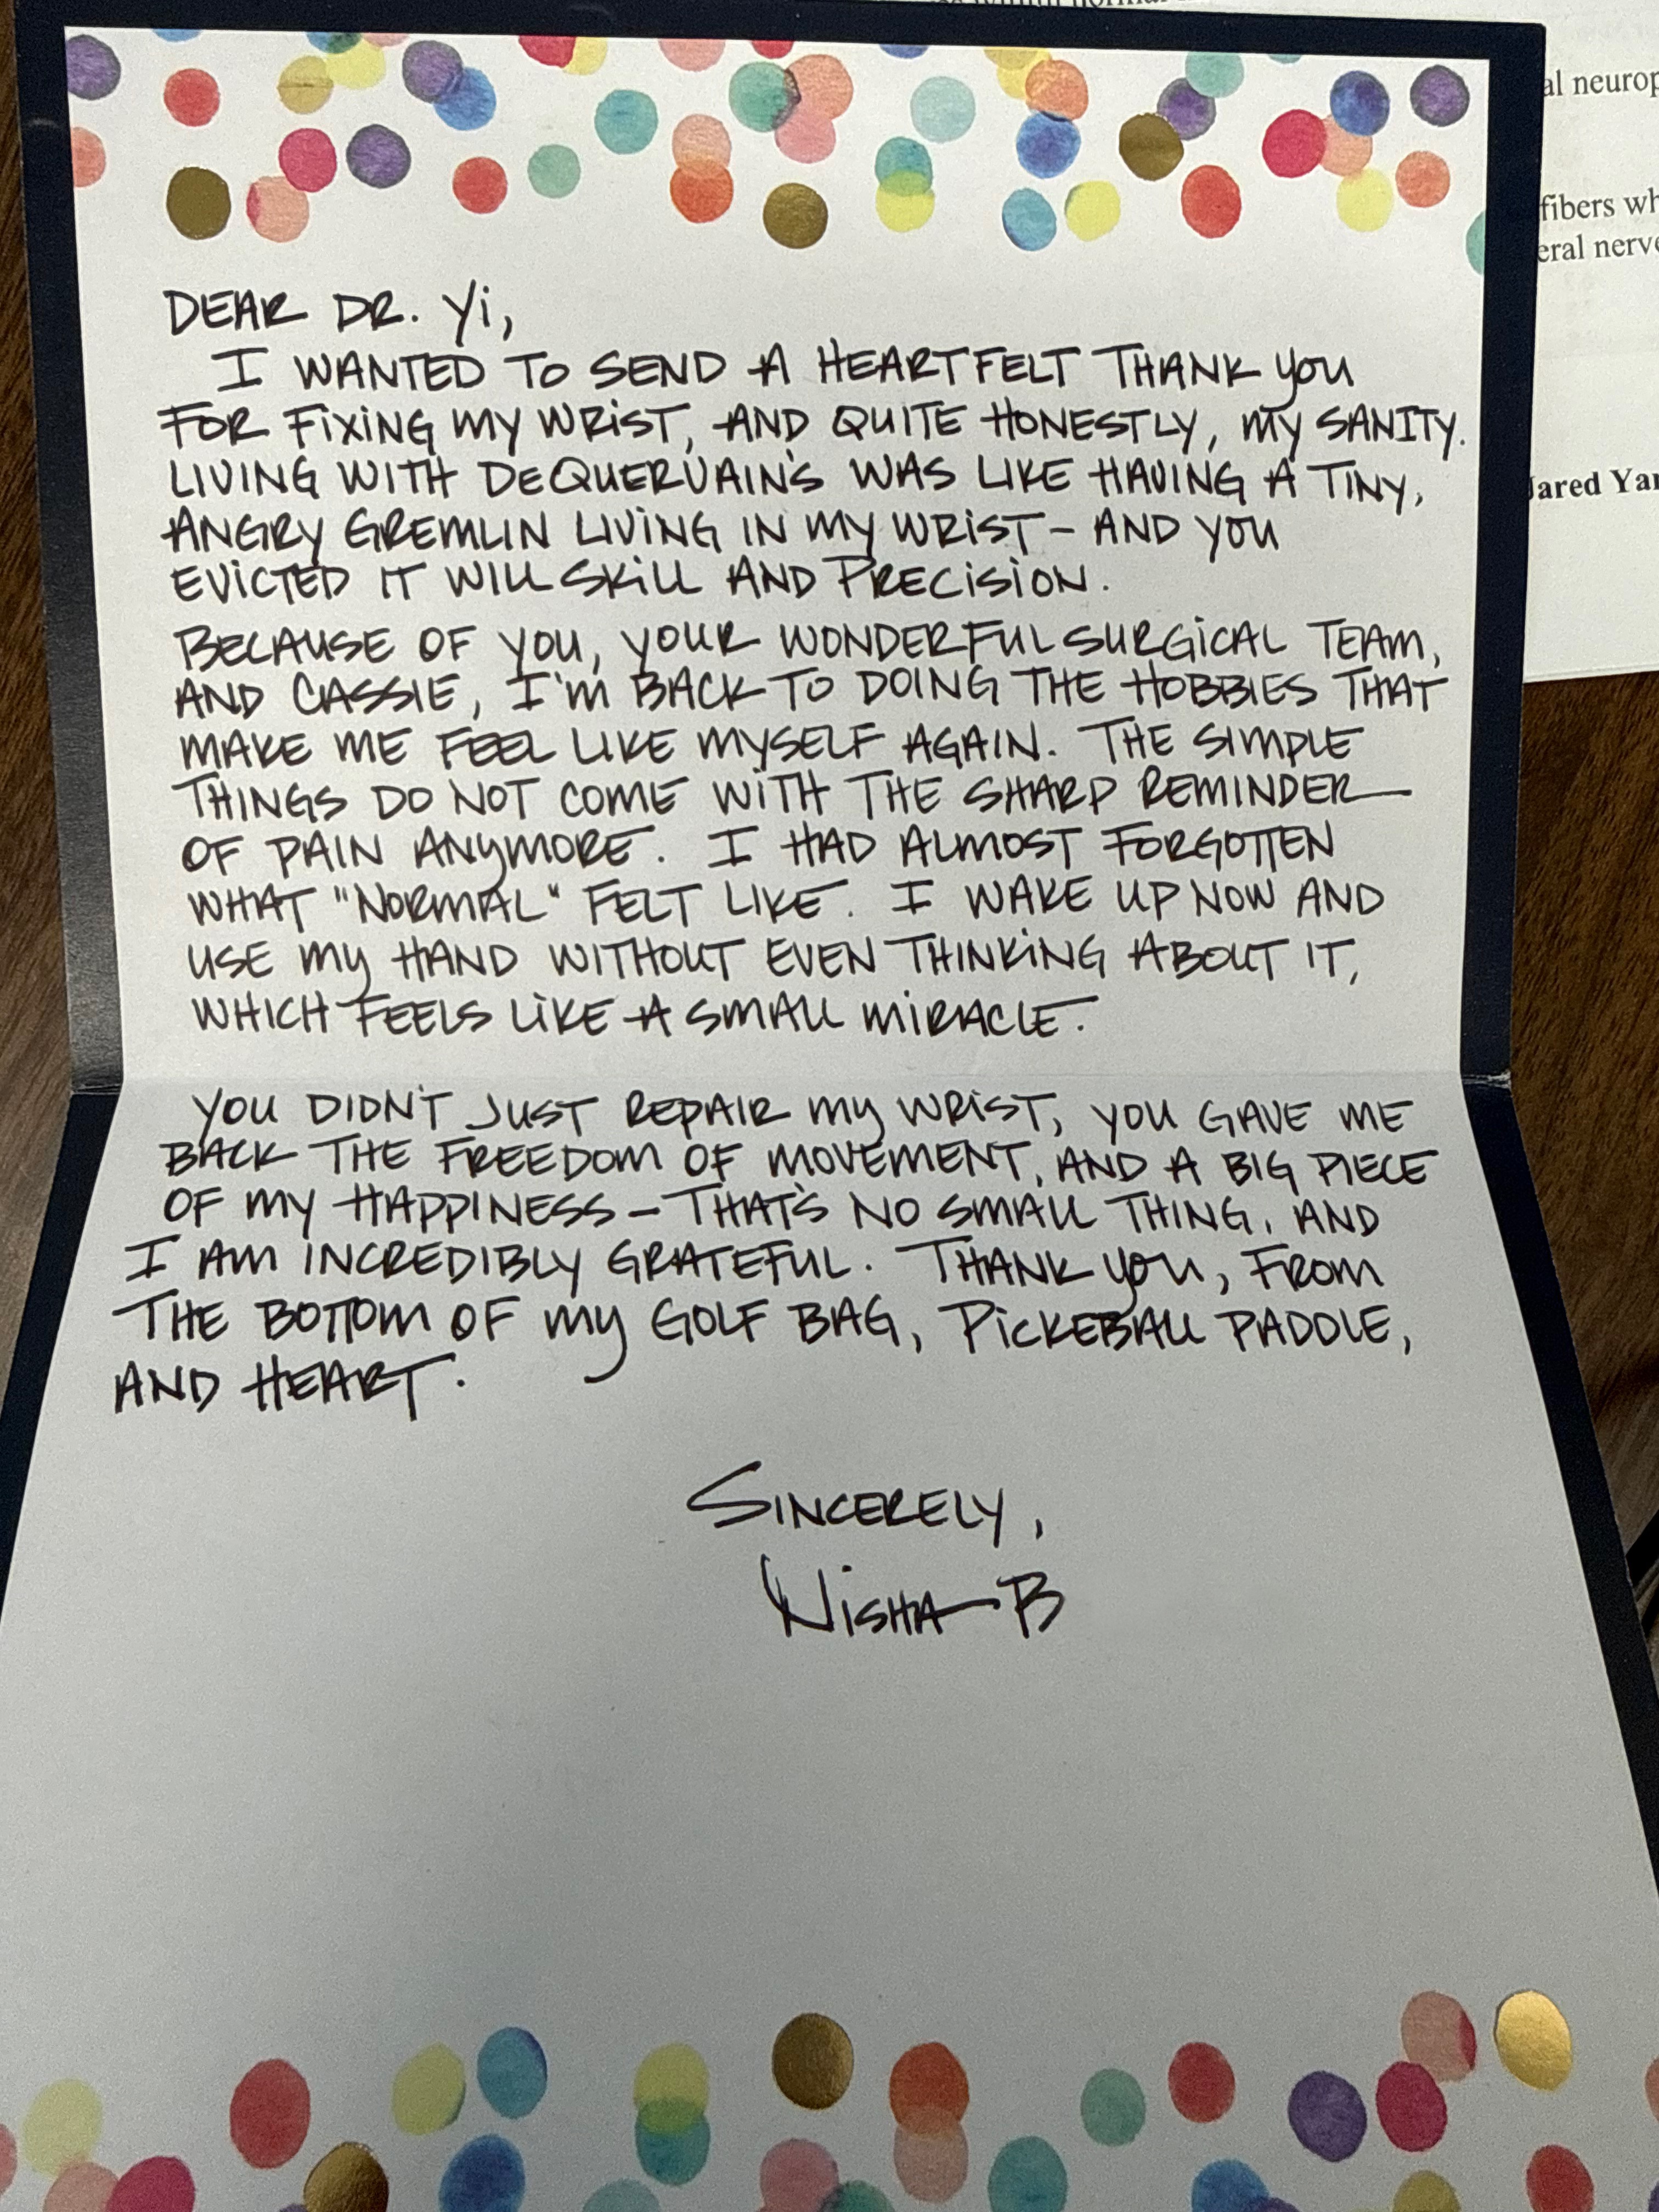 al neurop
fibers wh
eral nerve
Jared Yar
DEAR DR. Yi,
I WANTED TO SEND A HEARTFELT THANK YOU
FOR FIXING MY WRIST, AND QUITE HONESTLY, MY SANITY.
LIVING WITH DEQUERVAIN'S WAS LIKE HAVING A TINY,
ANGRY GREMLIN LIVING IN MY WRIST - AND YOU
EVICTED IT WILL SKILL AND PRECISION.
BECAUSE OF YOU, YOUR WONDERFUL SURGICAL TEAM,
AND CASSIE, I'M BACK TO DOING THE HOBBIES THAT
MAKE ME FEEL LIKE MYSELF AGAIN. THE SIMPLE
THINGS DO NOT COME WITH THE SHARP REMINDER
OF PAIN ANYMORE. I HAD ALMOST FORGOTTEN
WHAT "NORMAL" FELT LIKE. I WAKE UP NOW AND
USE MY HAND WITHOUT EVEN THINKING ABOUT IT,
WHICH FEELS LIKE A SMALL MIRACLE.
YOU DIDN'T JUST REPAIR MY WRIST, YOU GAVE ME
BACK THE FREEDOM OF MOVEMENT, AND A BIG PIECE
OF MY HAPPINESS - THAT'S NO SMALL THING, AND
I AM INCREDIBLY GRATEFUL. THANK YOU, FROM
THE BOTTOM OF MY GOLF BAG, PICKEBALL PADDLE,
AND HEART.
SINCERELY,
NISHA B